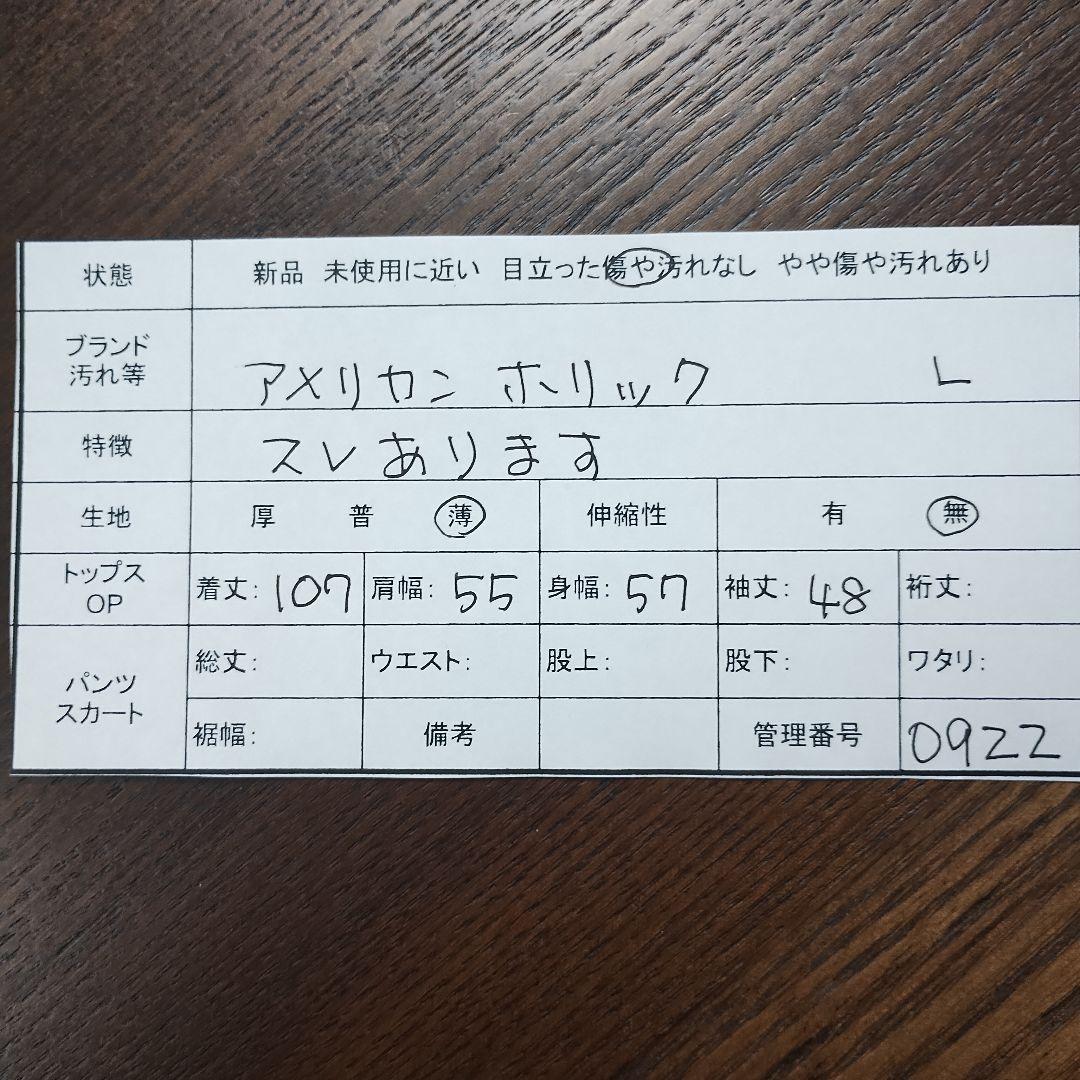 状態 新品 未使用に近い 目立った傷や汚れなし やや傷や汚れあり
ブランド
汚れ等 アメリカン ホリック L
特徴 スレあります
生地 厚 普 薄 伸縮性 有 無
トップス
OP 着丈: 107 肩幅: 55 身幅: 57 袖丈: 48 裄丈:
パンツ
スカート
総丈: ウエスト: 股上: 股下: ワタリ:
裾幅: 備考 管理番号 0922